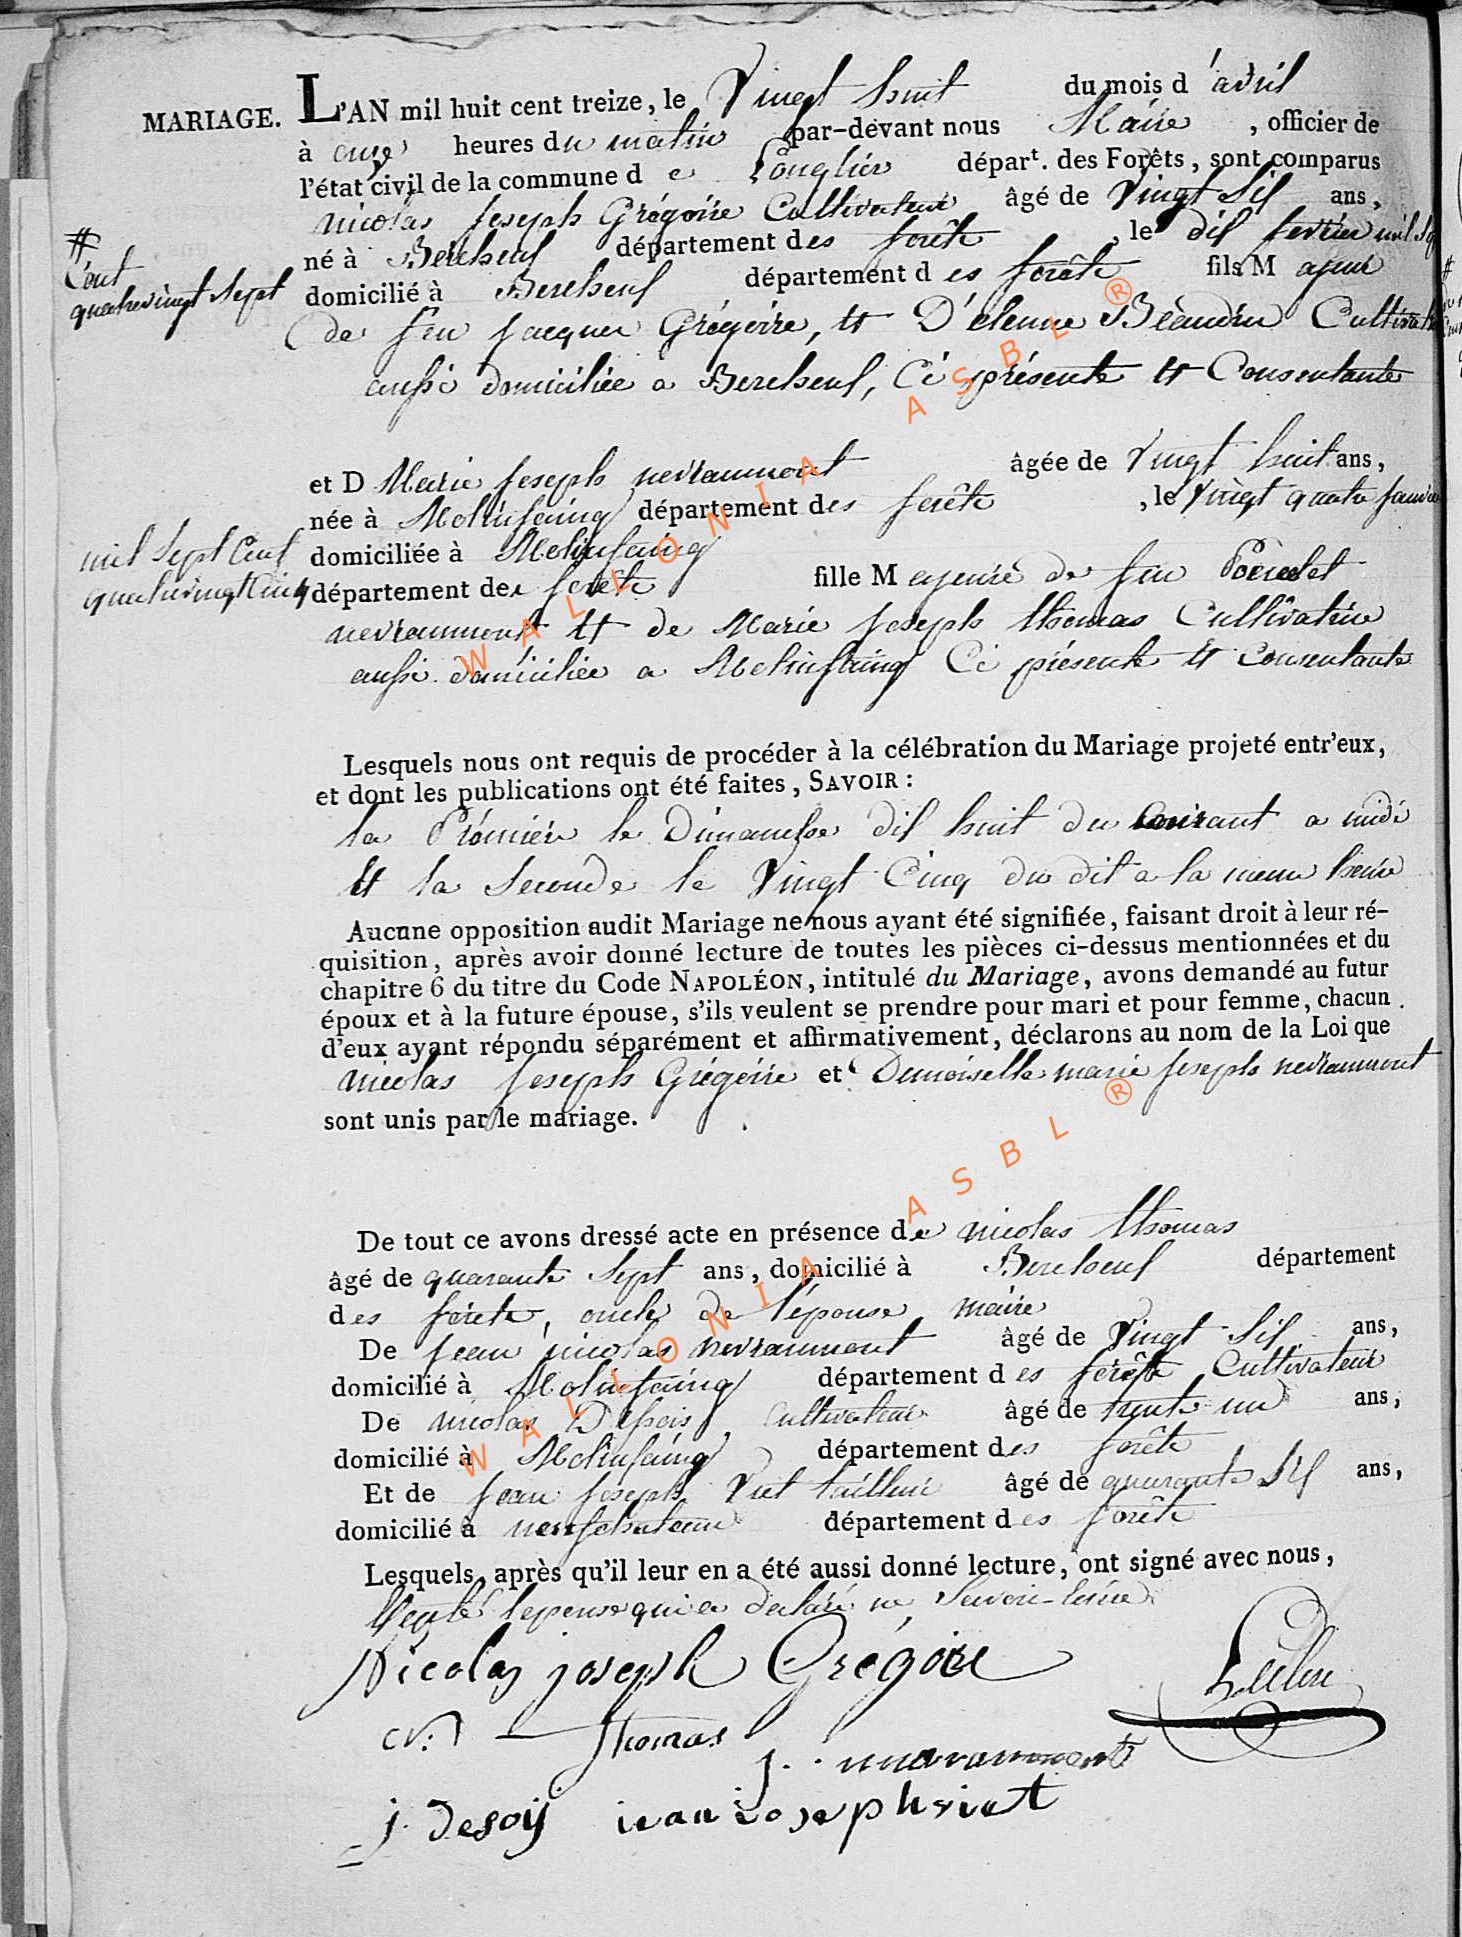 MARIAGE. L'AN mil huit cent treize, le Vingt huit du mois d'avril
à onze heures du matin par-devant nous Maire, officier de
l'état civil de la commune de Longlier départ. des Forêts, sont comparus
nicolas Joseph Grégoire Cultivateur âgé de Vingt Six ans,
né à Bercheux département des forêts, le dix fevrier mil Sept
# Cent
quatrevingt Sept
domicilié à Bercheux département des forêts fils Majeur
de feu Jacques Grégoire, et D'elenne Béaudin Cultivatrice
aussi domiciliée a Bercheux, Ci présente et Consentante
et D Marie Joseph nevraumont âgée de Vingt huit ans,
née à Molinfaing département des forêts, le Vingt quatre Janvier
mil Sept Cent
quatrevingt Cinq
domiciliée à Molinfaing
département des forêts fille Majeure de feu Poncelet
nevraumont et de Marie Joseph thomas Cultivatrice
aussi domiciliée a Molinfaing Ci présente et Consentante
Lesquels nous ont requis de procéder à la célébration du Mariage projeté entr'eux,
et dont les publications ont été faites, SAVOIR :
la Prémiére le Dimanche dix huit du Courant a midi
et la Seconde le Vingt Cinq du dit a la meme heure
Aucune opposition audit Mariage ne nous ayant été signifiée, faisant droit à leur ré-
quisition, après avoir donné lecture de toutes les pièces ci-dessus mentionnées et du
chapitre 6 du titre du Code NAPOLÉON, intitulé du Mariage, avons demandé au futur
époux et à la future épouse, s'ils veulent se prendre pour mari et pour femme, chacun
d'eux ayant répondu séparément et affirmativement, déclarons au nom de la Loi que
nicolas Joseph Grégoire et Demoiselle marie Joseph nevraumont
sont unis par le mariage.
De tout ce avons dressé acte en présence de nicolas thomas
âgé de quarante Sept ans, domicilié à Bercheux département
des forêts, oncle de l'épouse maire
De Jean nicolas nevraumont âgé de Vingt Six ans,
domicilié à Molinfaing département des forêts Cultivateur
De nicolas Cultivateur âgé de trente un ans,
domicilié à Molinfaing département des forêts
Et de Jean Joseph tailleur âgé de quarante Six ans,
domicilié à neufchateau département des forêts
Lesquels, après qu'il leur en a été aussi donné lecture, ont signé avec nous,
l'epouse qui a declaré ne Savoir
Nicolas joseph Grégoire
thomas
j. Desoij jean joseph
WALLONIA ASBL ®
WALLONIA ASBL ®